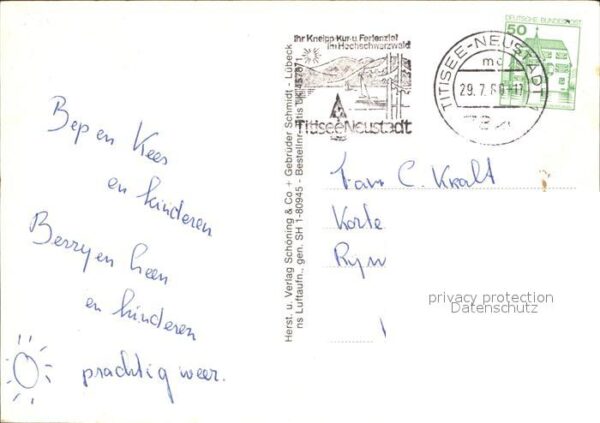 Bep en Kees
en kinderen
Berry en Leen
en kinderen
prachtig weer.
Herst. u. Verlag Schöning & Co + Gebrüder Schmidt - Lübeck
ns Luftaufn., gen. SH 1-80945 - Bestellnr.
Ihr Kneipp-Kur-u. Ferienziel
im Hochschwarzwald
Titisee-Neustadt
TITISEE-NEUSTADT
mc
29.7.80-17
DEUTSCHE BUNDESPOST
50
Fam C. Kralt
Korte
Ryn
privacy protection
Datenschutz